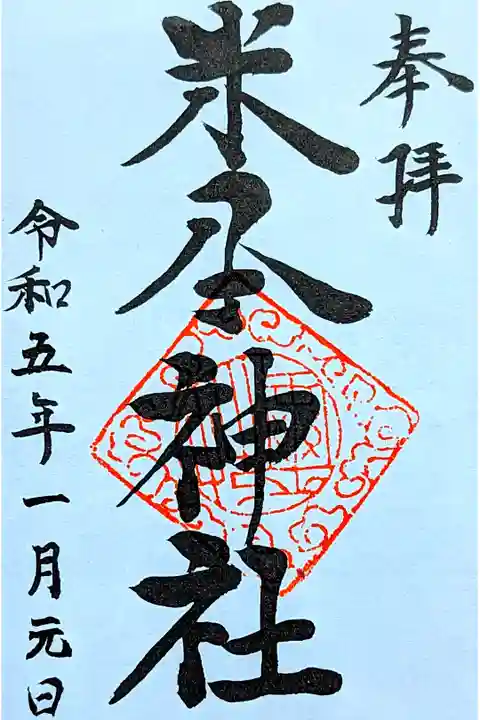 奉拝
米神社
令和五年一月元日